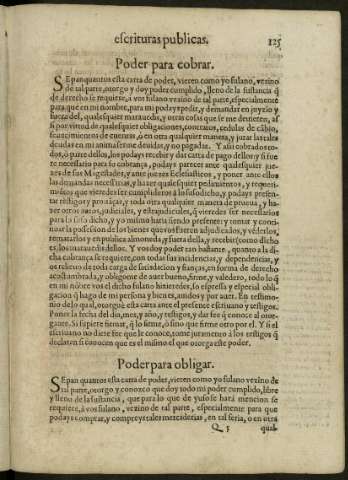 escrituras publicas. 125
Poder para cobrar.
SE pan quantos esta carta de poder, vieren como yo fulano, vezino
de tal parte, otorgo y doy poder cumplido, lleno de la sustancia q̃
de derecho se requiere, a vos fulano vezino de tal parte, especialmente
para que en mi nombre, para mi podays pedir, y demandar en juyzio y
fuera del, quales quier marauedis, y otras cosas que se me deuieren, assi
si por virtud de qualesquier obligaciones, contratos, cedulas de cãbio,
fenecimientos de cuentas, ò en otra qualquier manera, y jurar las tales
deudas en mi anima ser me deuidas, y no pagadas. Y assi cobrados e
dos, ò parte dellos, los podays recebir y dar carta de pago dellos y si fue
re necesario para su cobrança, podays parecer ante qualesquier jue-
zes de sus Magestades, y ante juezes Eclesiasticos, y poner ante ellos
las demandas necessarias, y hazer qualesquier pedimientos, y requeri-
mientos que vieredes ser cumplideros à lo susodicho, y podays presen-
tar testigos y prouãças, y toda otra qualquier manera de prueua, y ha-
zer otros autos, judiciales, y estrajudiciales, q̃ vieredes ser necessarios
para lo susodicho, y yo mismo haria siendo presente: y tomar y conti-
nuar la possession de los bienes que vos fueren adjudicados, y vẽderlos,
rematarlos en publica almoneda, y fuera della, y recebir (como dicho
es) los marauedis dellos. Y vos doy poder tan bastante, quanto a la di-
cha cobrança se requiere, con todas sus incidencias, y dependencias, y
os relieuo de toda carga de satisdacion y fianças, en forma de derecho
acostumbrada, y obligome de auer bueno, firme, y valedero, todo lo q̃
en mi nõbre vos el dicho fulano hizieredes, so espressa y especial obli-
gacion q̃ hago de mi persona y bienes, auidos y por auer. En testimo-
nio de lo qual, otorguè esta carta ante el presente escriuano y testigos.
Poner la fecha del dia, mes, y año, y testigos, y dar fee q̃ conoce al otor-
gante. Si supiere firmar, q̃ lo firme, ò sino que firme otro por el. Y si el
escriuano no diere fee que le conoce, tome juramento à los testigos q̃
declaren si conocen que es el mismo el que otorga este poder.
Poder para obligar.
SE pan quantos esta carta de poder, vieren como yo fulano vezino de
tal parte, otorgo y conozco que doy todo mi poder cumplido, libre
y lleno de la sustancia, que para lo que de yuso se harà mencion se
requiere, à vos fulano, vezino de tal parte, especialmente para que
podays comprar, y compreys tales mercaderias, en tal feria, o en otra
Q 3 qual-